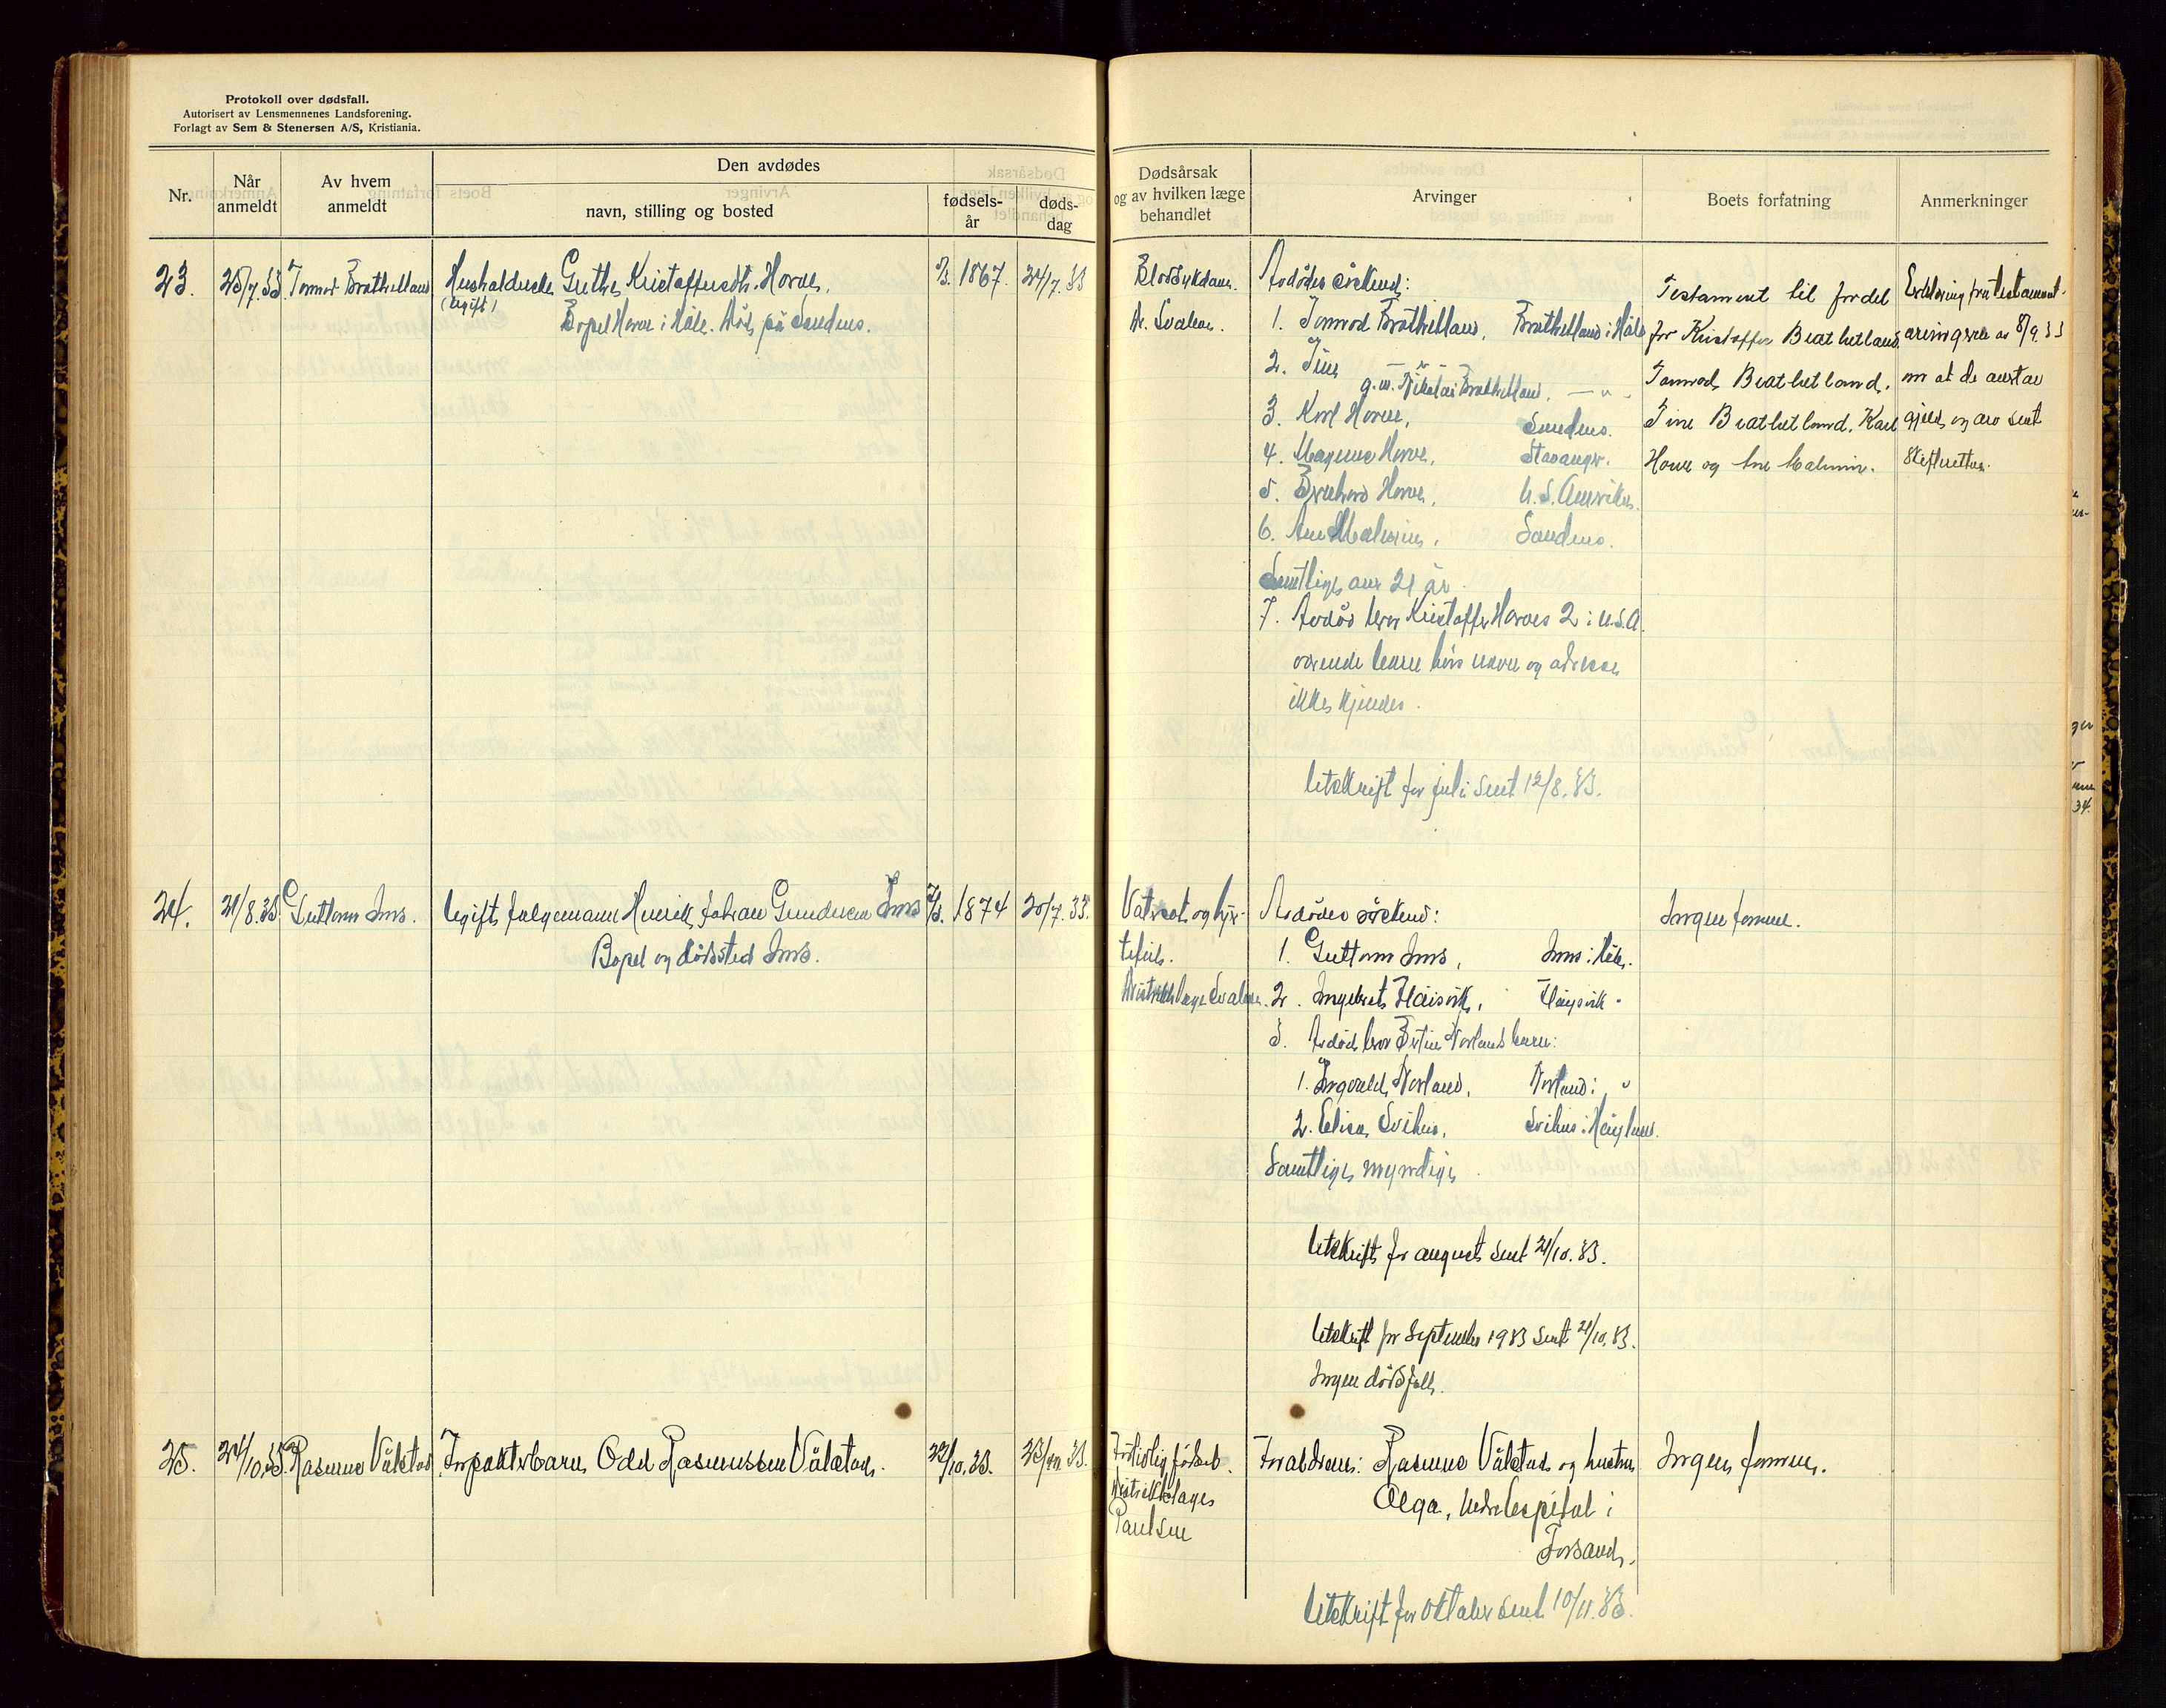 Protokoll over dødsfall.
Autorisert av Lensmennenes Landsforening.
Forlagt av Sem & Stenersen A/S, Kristiania.
Nr.
Når anmeldt
Av hvem anmeldt
Den avdødes
navn, stilling og bosted
fødsels-år
døds-dag
Dødsårsak og av hvilken læge behandlet
Arvinger
Boets forfatning
Anmerkninger
23. 25/7.33 Tonnes Brathetland Husholderske Guthe Kristoffersdtr. Horve. 1867. 24/7.33
(Ugift) Bopel Horve i Höle. Död på Sandnes.
Blodsykdom.
Dr. Svalesen.
Avdødes søskend:
1. Brathetland, Brathetland i Höle
2. Tine
g.m. Nikolai Brathetland, — " —
3. Karl Horve, Sandnes.
4. Magnus Horve, Stavanger.
5. Horve, U.S. Amerika.
6. Ane Malmin, Sandnes.
Samtlige over 21 år.
7. Avdød bror Kristoffer Horves 2 i U.S.A.
værende barn hvis navn og adresse
ikke kjendes.
Testament til fordel
for Kristoffer Brathetland,
Brathetland.
Tine Brathetland. Karl
Horve og Ane Malmin.
Erklæring fra testament-
arvingene av 8/9.33
om at de overtar
gjeld og arv sent
Skifteretten.
Utskrift for juli sent 12/8.33.
24. 21/8.33 Guttorm Ims. Ugift Henrik Johan Gundersen Ims 1874 20/7.33.
Bopel og dödssted Ims.
Vatersot og hjer-
tefeil.
Distriktslæge Svalesen.
Avdødes søskend:
1. Guttorm Ims, Ims i Höle.
2. Ingebret Høisvik, "
3. Avdød bror Norlands barn:
1. Ingvald Norland, Norland i "
2. Elisa Svihus, Svihus i Högsfjord.
Samtlige myndige.
Ingen formue.
Utskrift for august sent 21/10.33.
Utskrift for September 1933 sent 21/10.33.
Ingen dødsfall.
25. 24/10.33 Rasmus Vålstad Odd Rasmussen Vålstad. 22/10.33. 23/10.33.
Fortidlig födsel.
Distriktslæge
Paulsen
Foreldrene: Rasmus Vålstad og hustru
Olga, i
Forsand.
Ingen formue.
Utskrift for oktober sent 10/11.33.